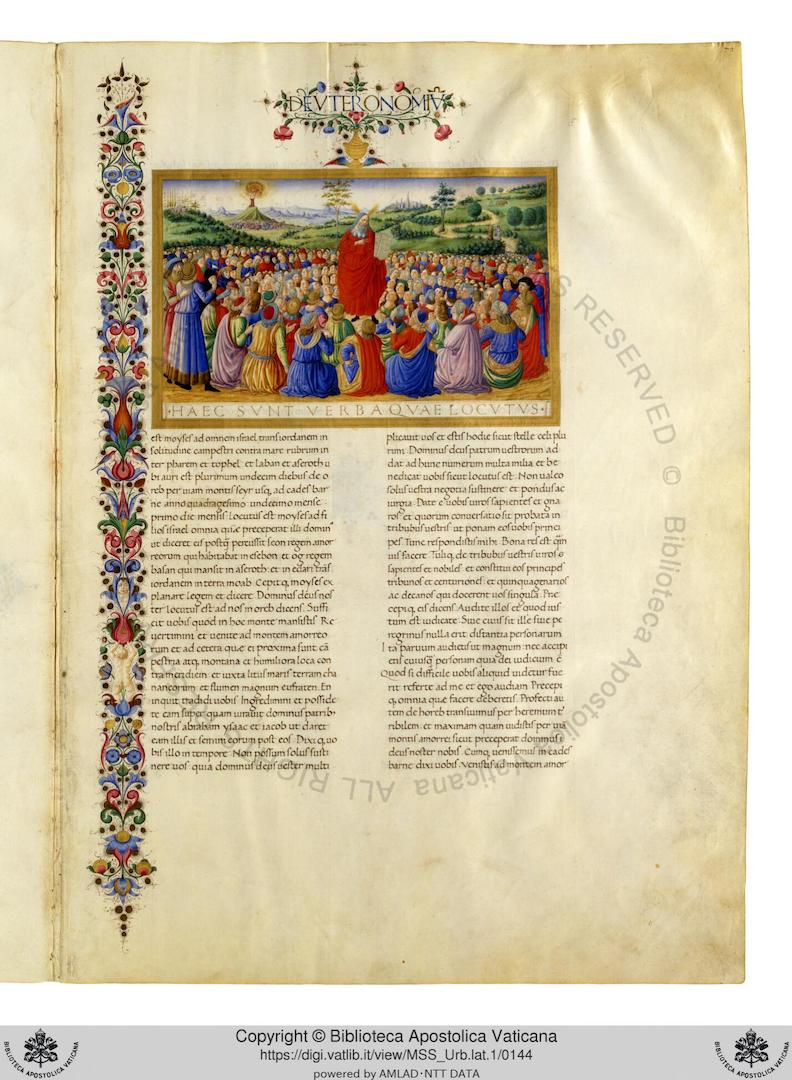 DEVTERONOMIV
·HAEC SVNT VERBA QVAE LOCVTVS·
est moyses ad omnem israel trans iordanem in
solitudine campestri contra mare rubrum in
ter pharem et tophel et laban et aseroth u
bi auri est plurimum undecim diebus de o
reb per uiam montis seyr usq, ad cades bar
ne anno quadragesimo undecimo mense
primo die mensis Locutus est moyses ad fi
lios israel omnia quae preceperat illi domin'
ut diceret eis postq̃ percussit seon regem amor
reorum qui habitabat in esebon et og regem
basan qui mansit in aseroth et in edrai trãs
iordanem in terra moab Cepit q, moyses ex
planare legem et dicere Dominus deus nos
ter locutus est ad nos in oreb dicens Suffi
cit uobis quod in hoc monte mansistis Re
uertimini et uenite ad montem amorreo
rum et ad cetera que ei proxima sunt cã
pestria atq, montana et humiliora loca con
tra meridiem et iuxta litus maris terram cha
naneorum et flumen magnum eufraten En
inquit tradidi uobis Ingredimini et posside
te eam super quam iurauit dominus patrib,
nostris abraham ysaac et iacob ut daret
eam illis et semini eorum post eos Dixi q, uo
bis illo in tempore Non possum solus susti
nere uos quia dominus deus uester multi
plicauit uos et estis hodie sicut stelle celi plu
rimi Dominus deus patrum uestrorum ad
dat ad hunc numerum multa milia et be
nedicat uobis sicut locutus est Non ualeo
solus uestra negotia sustinere et pondus ac
iurgia Date e uobis uiros sapientes et gna
ros et quorum conuersatio sit probata in
tribubus uestris ut ponam eos uobis princi
pes Tunc respondistis mihi Bona res est
uis facere Tuliq, de tribubus uestris uiros
sapientes et nobiles et constitui eos principes
tribunos et centuriones et quinquagenarios
ac decanos qui docerent uos singula Pre
cepi q, eis dicens Audite illos et quod ius
tum est iudicate Siue ciuis sit ille siue pe
regrinus nulla erit distantia personarum
Ita paruum audietis ut magnum nec accipi
etis cuiusq, personam quia dei iudicium ẽ
Quod si difficile uobis aliquid uidetur fue
rit referte ad me et ego audiam Precepi
q, omnia que facere deberetis Profecti au
tem de horeb transiuimus per heremum t'
ribilem et maximam quam uidistis per uiã
montis amorrei sicut preceperat dominus
deus noster nobis Cumq, uenissemus in cades
barne dixi uobis Venistis ad montem amor
Biblioteca Apostolica Vaticana ALL RIGHTS RESERVED ©
Copyright © Biblioteca Apostolica Vaticana
https://digi.vatlib.it/view/MSS_Urb.lat.1/0144
powered by AMLAD·NTT DATA
BIBLIOTECA APOSTOLICA VATICANA
BIBLIOTECA APOSTOLICA VATICANA